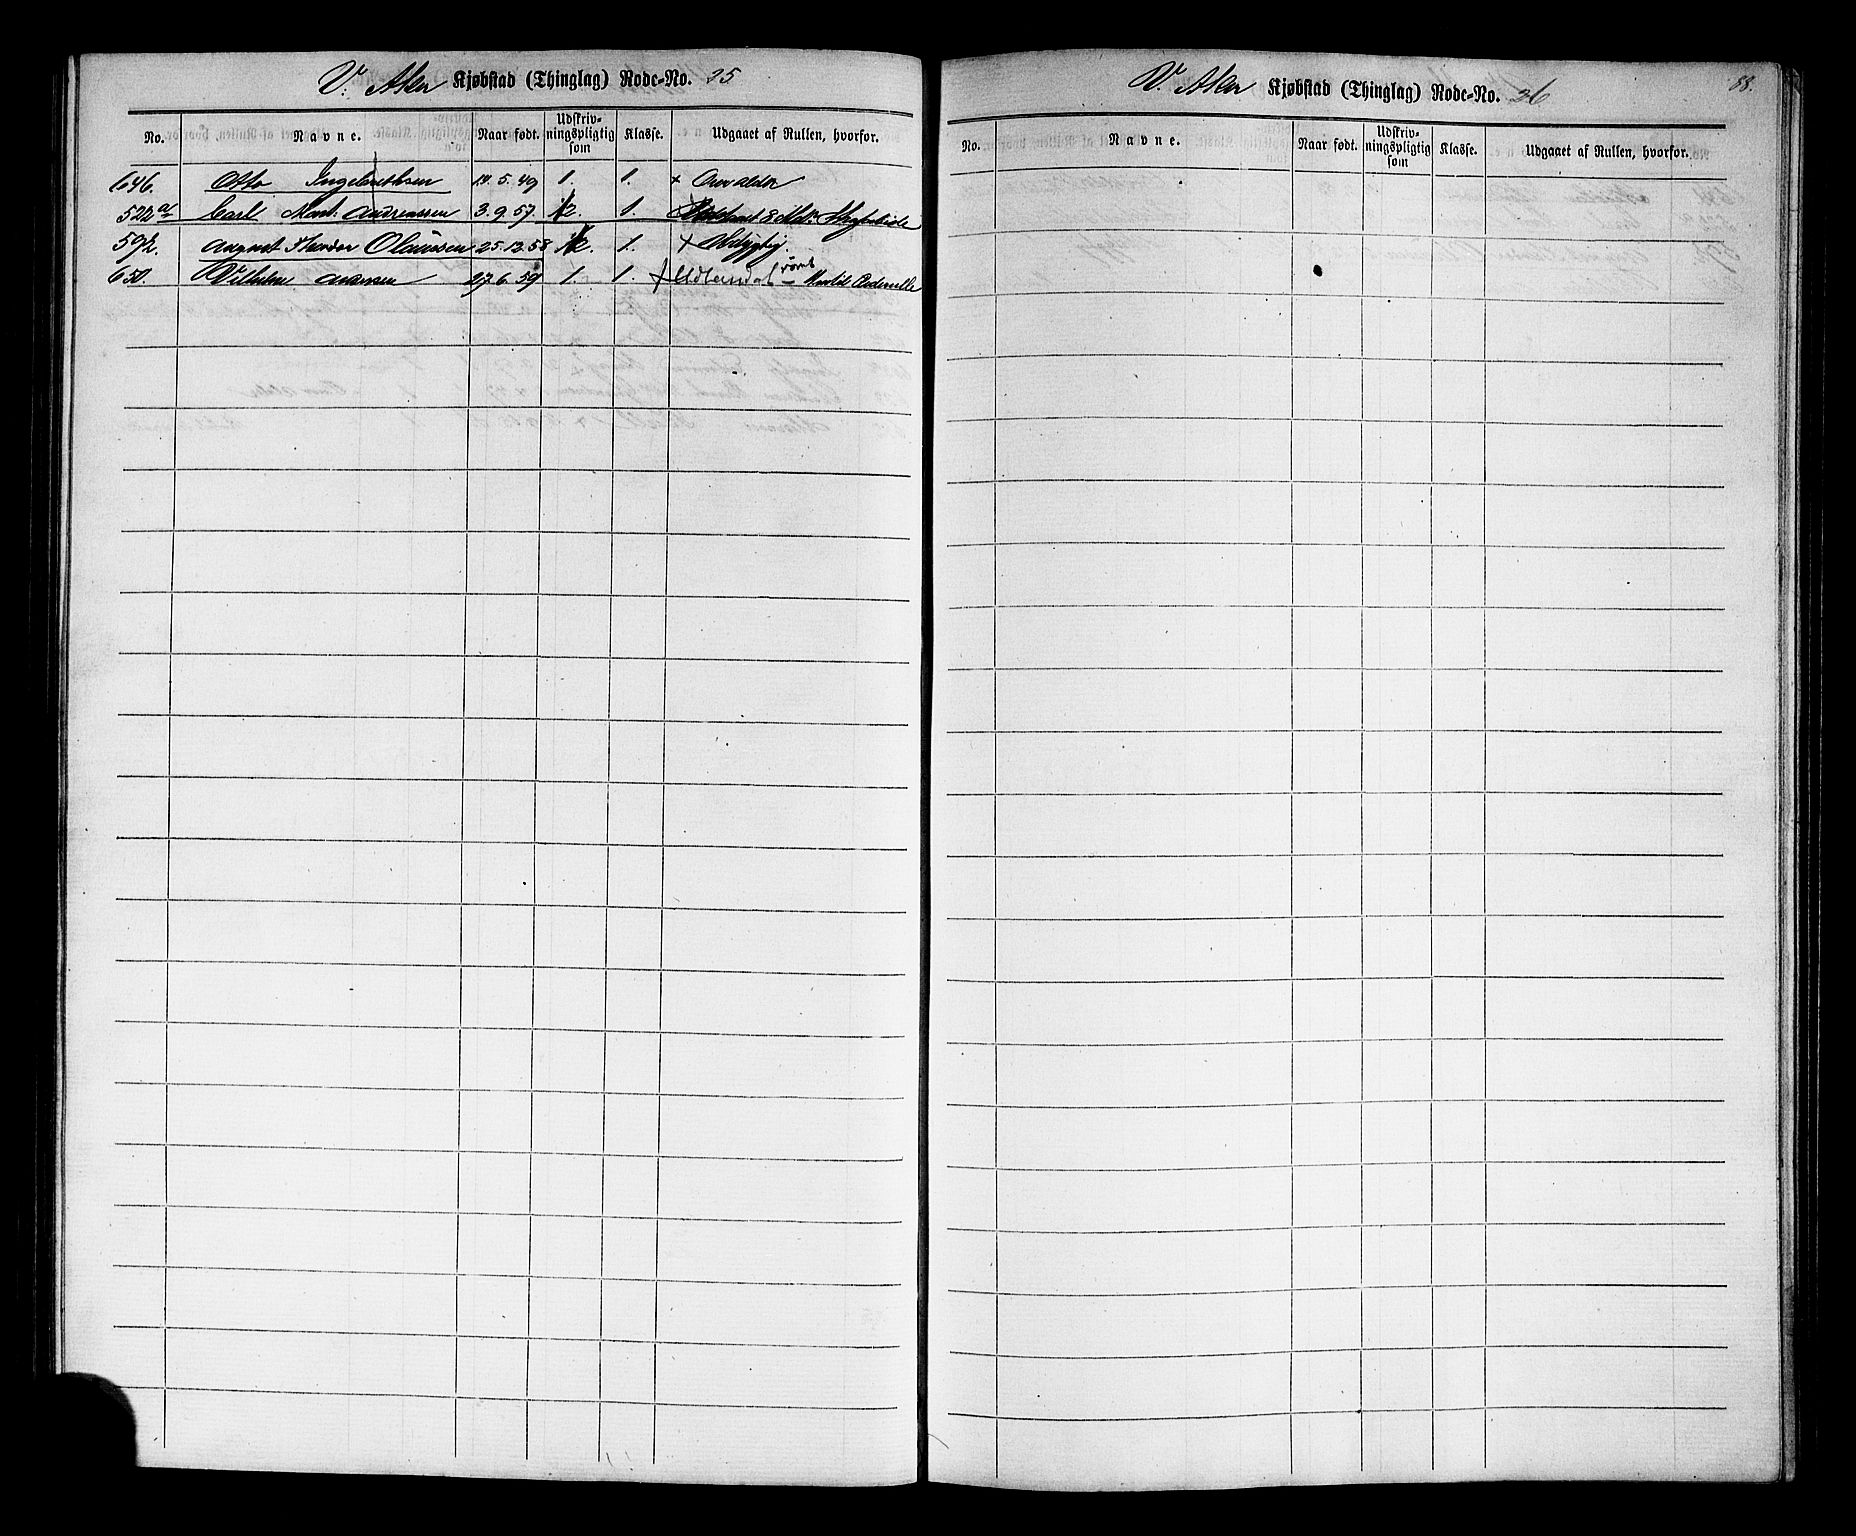 V. Aker Kjøbstad (Thinglag) Rode-No. 25
No. Navne. Naar født. Udskriv-ningspligtig som Klasse. Udgaaet af Rullen, hvorfor.
646. Otto Ingebrethsen 5. 49 1. 1. + Over alder
522 a Carl Andreassen 3. 9. 57. 2. 1.
592. August Theodor Olaussen 25. 12. 58 2. 1. + Udygtig
650. Vilhelm 27. 6. 59 1. 1.
V. Aker Kjøbstad (Thinglag) Rode-No. 26
88.
No. Navne. Naar født. Udskriv-ningspligtig som Klasse. Udgaaet af Rullen, hvorfor.